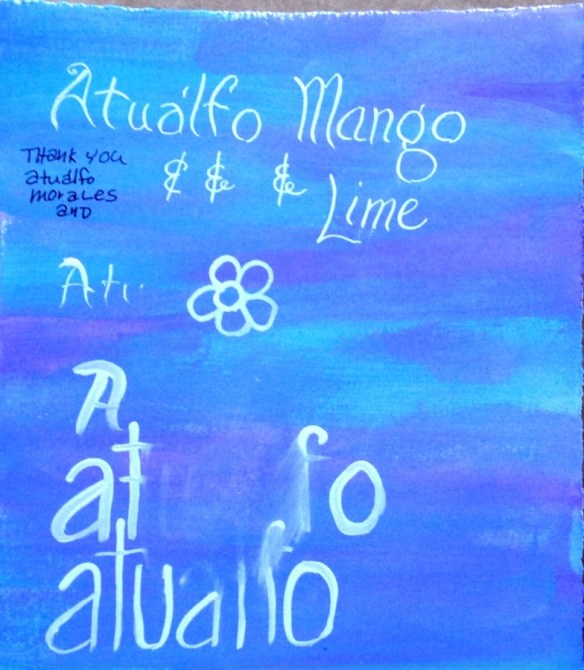 Atuálfo Mango
Thank you
atualfo
morales
and
& & &
Lime
At
A
at fo
atualfo